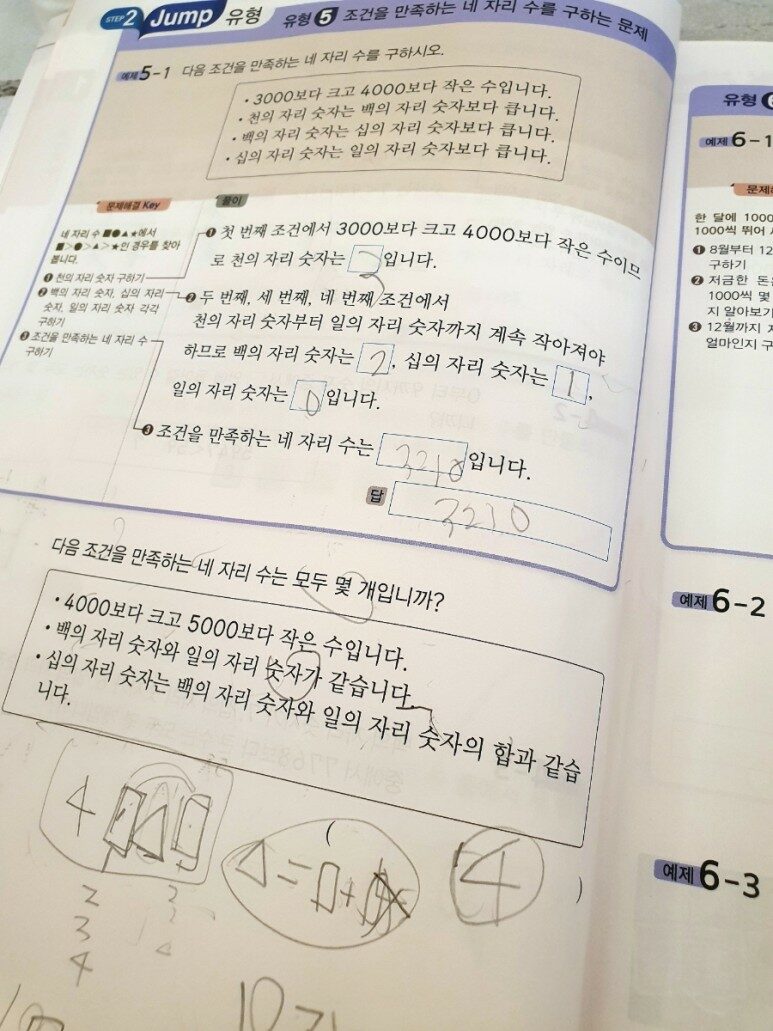 STEP 2 Jump 유형 유형 5 조건을 만족하는 네 자리 수를 구하는 문제
예제 5-1 다음 조건을 만족하는 네 자리 수를 구하시오.
· 3000보다 크고 4000보다 작은 수입니다.
· 천의 자리 숫자는 백의 자리 숫자보다 큽니다.
· 백의 자리 숫자는 십의 자리 숫자보다 큽니다.
· 십의 자리 숫자는 일의 자리 숫자보다 큽니다.
문제해결 Key
네 자리 수 ■●▲★에서
■>●>▲>★인 경우를 찾아
봅니다.
❶ 천의 자리 숫자 구하기
❷ 백의 자리 숫자, 십의 자리
숫자, 일의 자리 숫자 각각
구하기
❸ 조건을 만족하는 네 자리 수
구하기
풀이
❶ 첫 번째 조건에서 3000보다 크고 4000보다 작은 수이므
로 천의 자리 숫자는 3입니다.
❷ 두 번째, 세 번째, 네 번째 조건에서
천의 자리 숫자부터 일의 자리 숫자까지 계속 작아져야
하므로 백의 자리 숫자는 2, 십의 자리 숫자는 1,
일의 자리 숫자는 0입니다.
❸ 조건을 만족하는 네 자리 수는 3210입니다.
답 3210
다음 조건을 만족하는 네 자리 수는 모두 몇 개입니까?
· 4000보다 크고 5000보다 작은 수입니다.
· 백의 자리 숫자와 일의 자리 숫자가 같습니다.
· 십의 자리 숫자는 백의 자리 숫자와 일의 자리 숫자의 합과 같습
니다.
4 □△□
△=□+□
( 4 )
2 2
3
4 4
유형
예제 6-1
한 달에 1000
1000씩 뛰어
❶ 8월부터 12
구하기
❷ 저금한 돈은
1000씩 몇
지 알아보기
❸ 12월까지
얼마인지 구
예제 6-2
예제 6-3